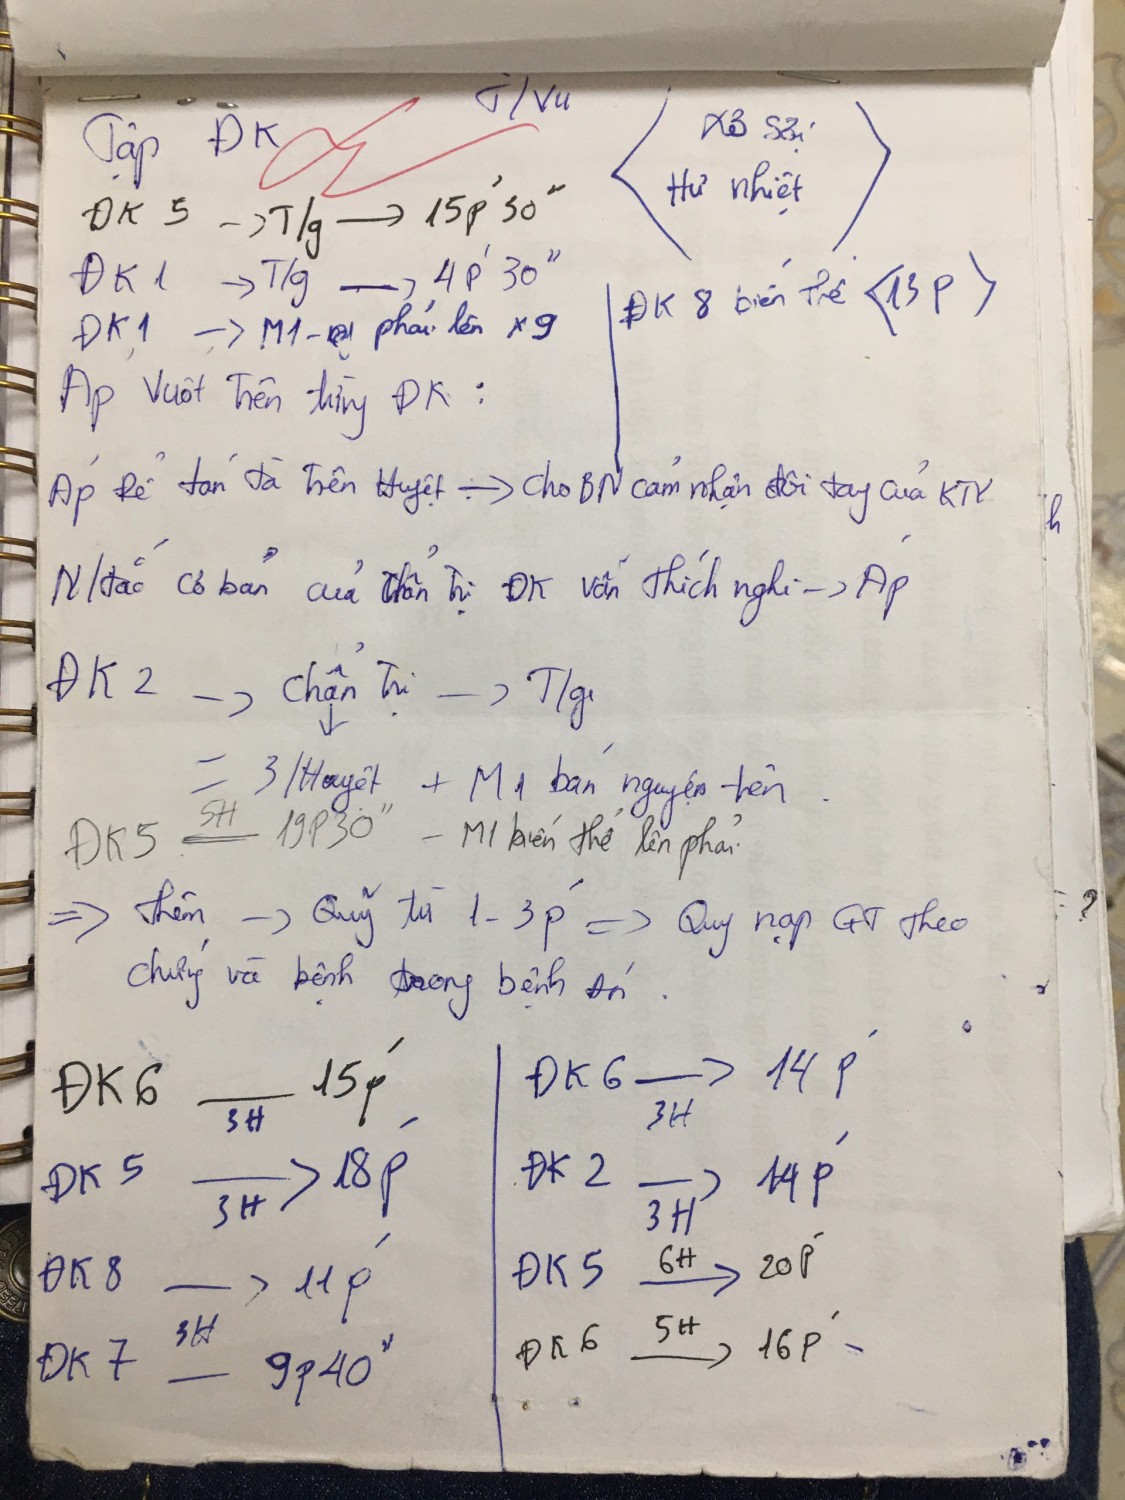 T/Vu
Tập ĐK
Xổ Sợi
Hư nhiệt
ĐK 5 -> T/g -> 15p' 30"
ĐK 1 -> T/g -> 4p' 30"
ĐK 8 biến thể <13p>
ĐK1 -> M1 - phải lên x9
Áp Vuốt Trên từng ĐK :
Áp Rề tan tà Trên Huyệt -> Cho BN cảm nhận đôi tay của KTV
N/tắc cơ bản của Chẩn Trị ĐK vẫn thích nghi -> Áp
ĐK 2 -> Chẩn Trị -> T/g
= 3/Huyệt + M1 bán nguyên trên .
ĐK5 5H 19P30" - M1 biến thể lên phải
=> Thêm -> Quỹ từ 1 - 3p' => Quy nạp GT theo
chứng và bệnh trong bệnh án .
ĐK6 3H 15p'
ĐK 5 3H > 18p'
ĐK 8 -> 11p'
ĐK 7 3H 9p40"
ĐK 6 -> 3H 14p'
ĐK 2 -> 3H 14p'
ĐK 5 6H -> 20p'
ĐK 6 5H -> 16p' -
h
= ?